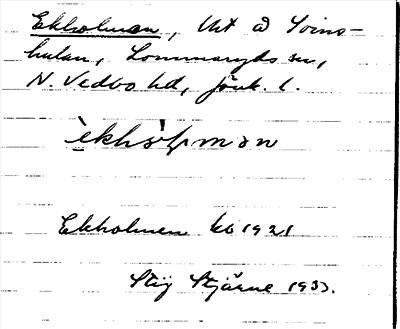 Ekholmen, Utt å Svins-
hulan, Lommaryds sn,
N. Vedbo hd, Jönk. l.
Ekholmen kb 1921
Stig Stjärne 1933.